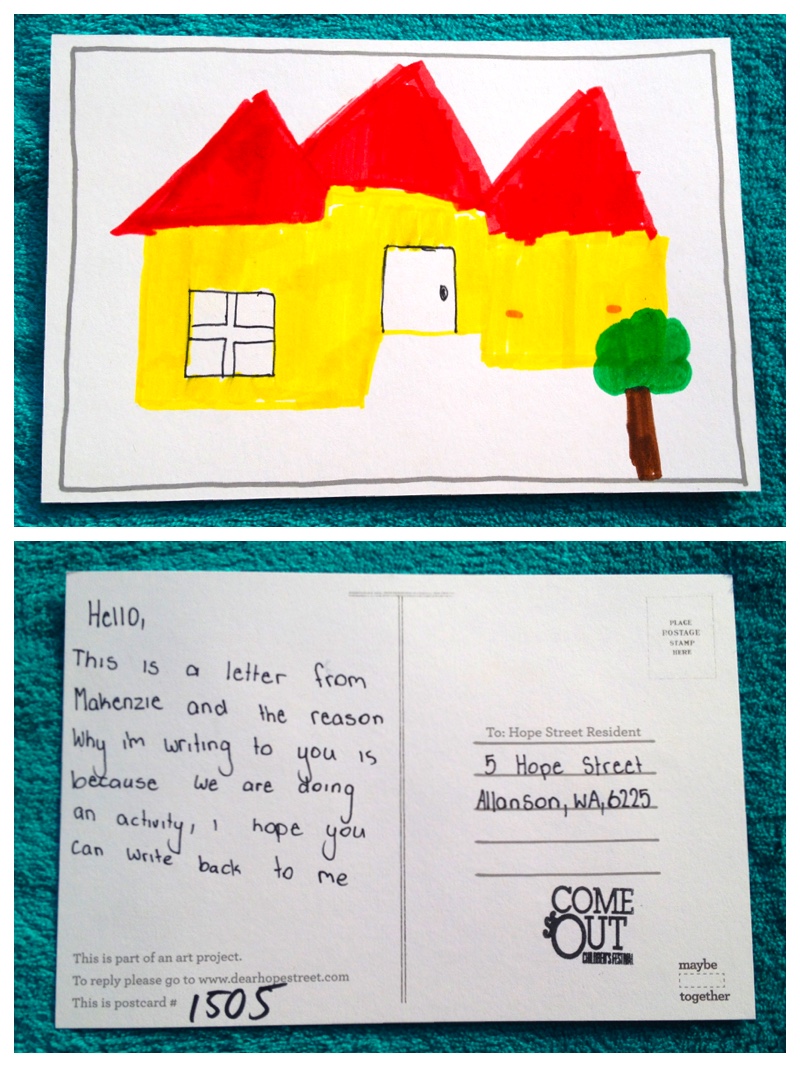 Hello,
This is a letter from
Makenzie and the reason
Why i'm writing to you is
because we are doing
an activity, i hope you
can write back to me
This is part of an art project.
To reply please go to www.dearhopestreet.com
This is postcard # 1505
PLACE
POSTAGE
STAMP
HERE
To: Hope Street Resident
5 Hope Street
Allanson, WA, 6225
COME
OUT
CHILDREN'S FESTIVAL
maybe
together